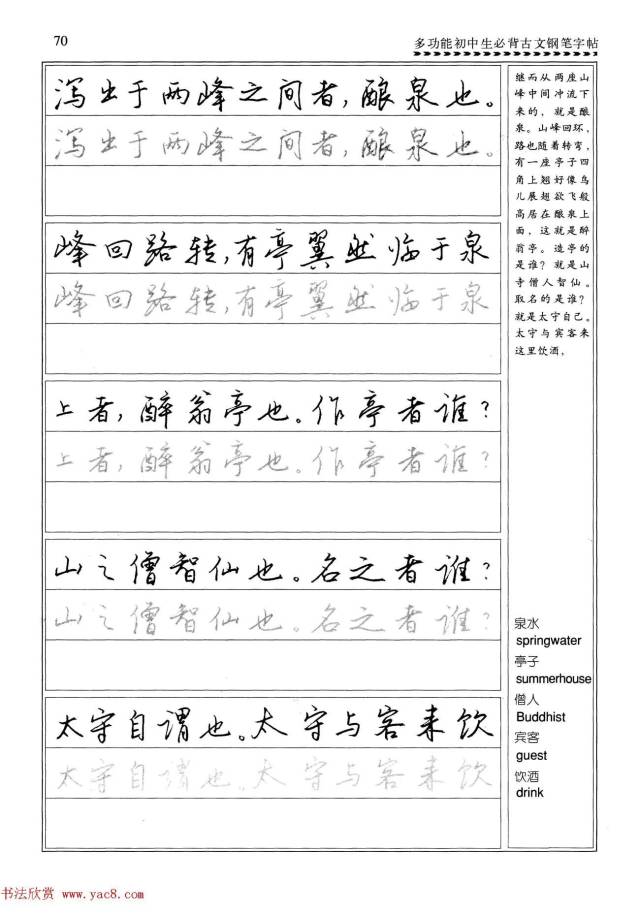 70
多功能初中生必背古文钢笔字帖
泻出于两峰之间者，酿泉也。
泻出于两峰之间者，酿泉也。
峰回路转，有亭翼然临于泉
峰回路转，有亭翼然临于泉
上者，醉翁亭也。作亭者谁？
上者，醉翁亭也。作亭者谁？
山之僧智仙也。名之者谁？
山之僧智仙也。名之者谁？
太守自谓也。太守与客来饮
太守自谓也。太守与客来饮
继而从两座山
峰中间冲流下
来的，就是酿
泉。山峰回环，
路也随着转弯，
有一座亭子四
角上翘好像鸟
儿展翅欲飞般
高居在酿泉上
面，这就是醉
翁亭。造亭的
是谁？就是山
寺僧人智仙。
取名的是谁？
就是太守自己。
太守与宾客来
这里饮酒，
泉水
springwater
亭子
summerhouse
僧人
Buddhist
宾客
guest
饮酒
drink
书法欣赏 www.yac8.com